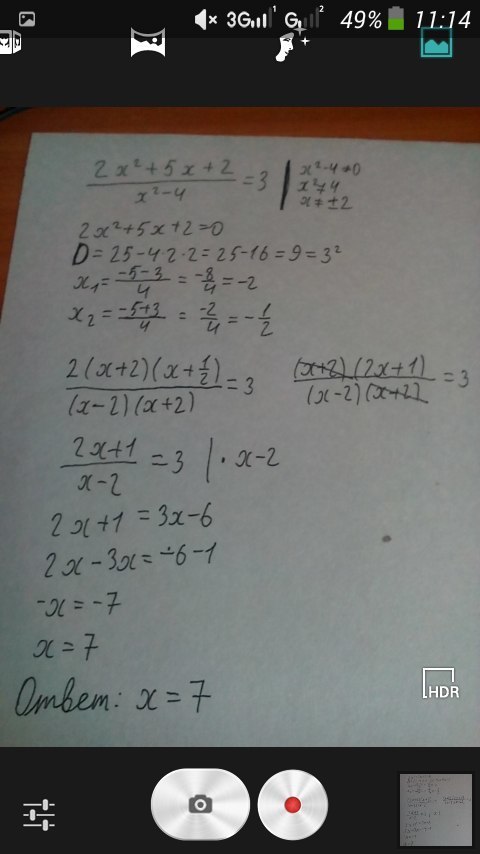 3G 1 G 2 49% 11:14
(2x²+5x+2)/(x²-4) = 3 | x²-4≠0
x²≠4
x≠±2
2x²+5x+2=0
D=25-4·2·2=25-16=9=3²
x₁=(-5-3)/4 = -8/4 = -2
x₂=(-5+3)/4 = -2/4 = -1/2
2(x+2)(x+1/2)/((x-2)(x+2)) = 3 (x+2)(2x+1)/((x-2)(x+2)) = 3
(2x+1)/(x-2) = 3 | · x-2
2x+1 = 3x-6
2x-3x = -6-1
-x = -7
x = 7
Ответ: x = 7
HDR